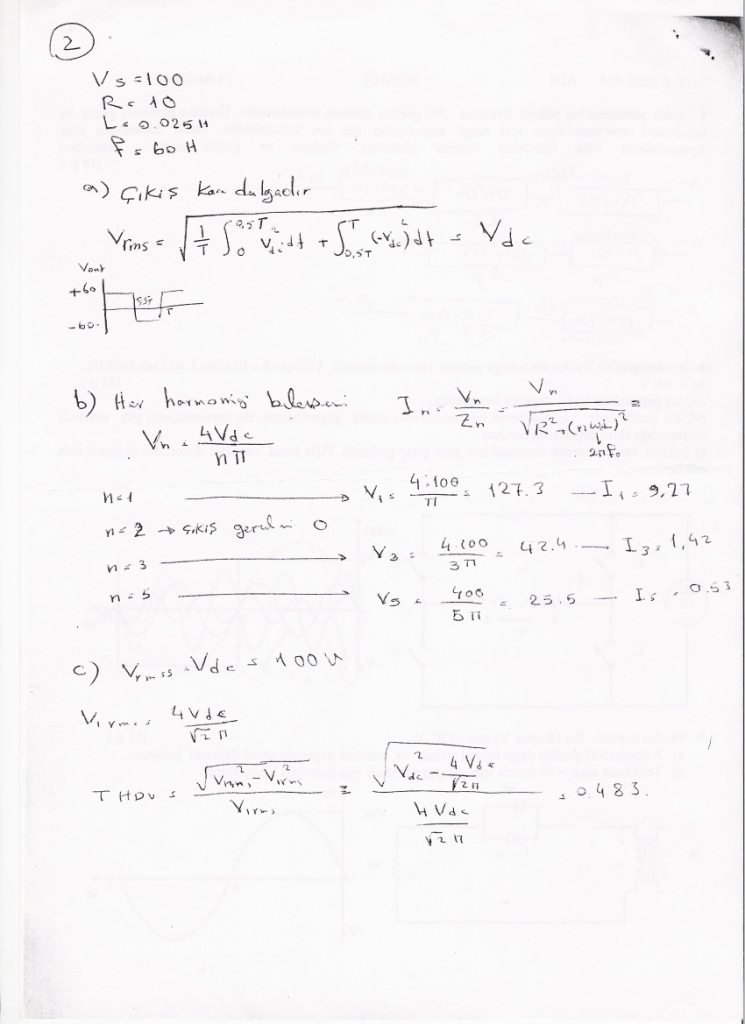 2
Vs = 100
R = 10
L = 0.025H
f = 60 H
a) Çıkış kare dalgadır
Vrms = √(1/T ∫₀^0,5T Vdc² dt + ∫_0,5T^T (-Vdc)² dt) = Vdc
Vout
+60
0,5T
T
-60
b) Her harmoniği bileşeni
In = Vn/Zn = Vn/√(R²-(nω₀L)²) =
2πf₀
Vn = 4Vdc/nπ
n=1 → V₁ = 4·100/π = 127.3 — I₁ = 9,27
n=2 → Çıkış gerilimi 0
n=3 → V₃ = 4.100/3π = 42.4 — I₃ = 1,42
n=5 → V5 = 400/5π = 25.5 — I₅ = 0.53
c) Vrms = Vdc = 100V
V1rms = 4Vdc/√2π
THDv = √(Vrms² - V1rms²)/V1rms = √(Vdc² - 4Vdc/√2π)/(4Vdc/√2π) = 0.483.